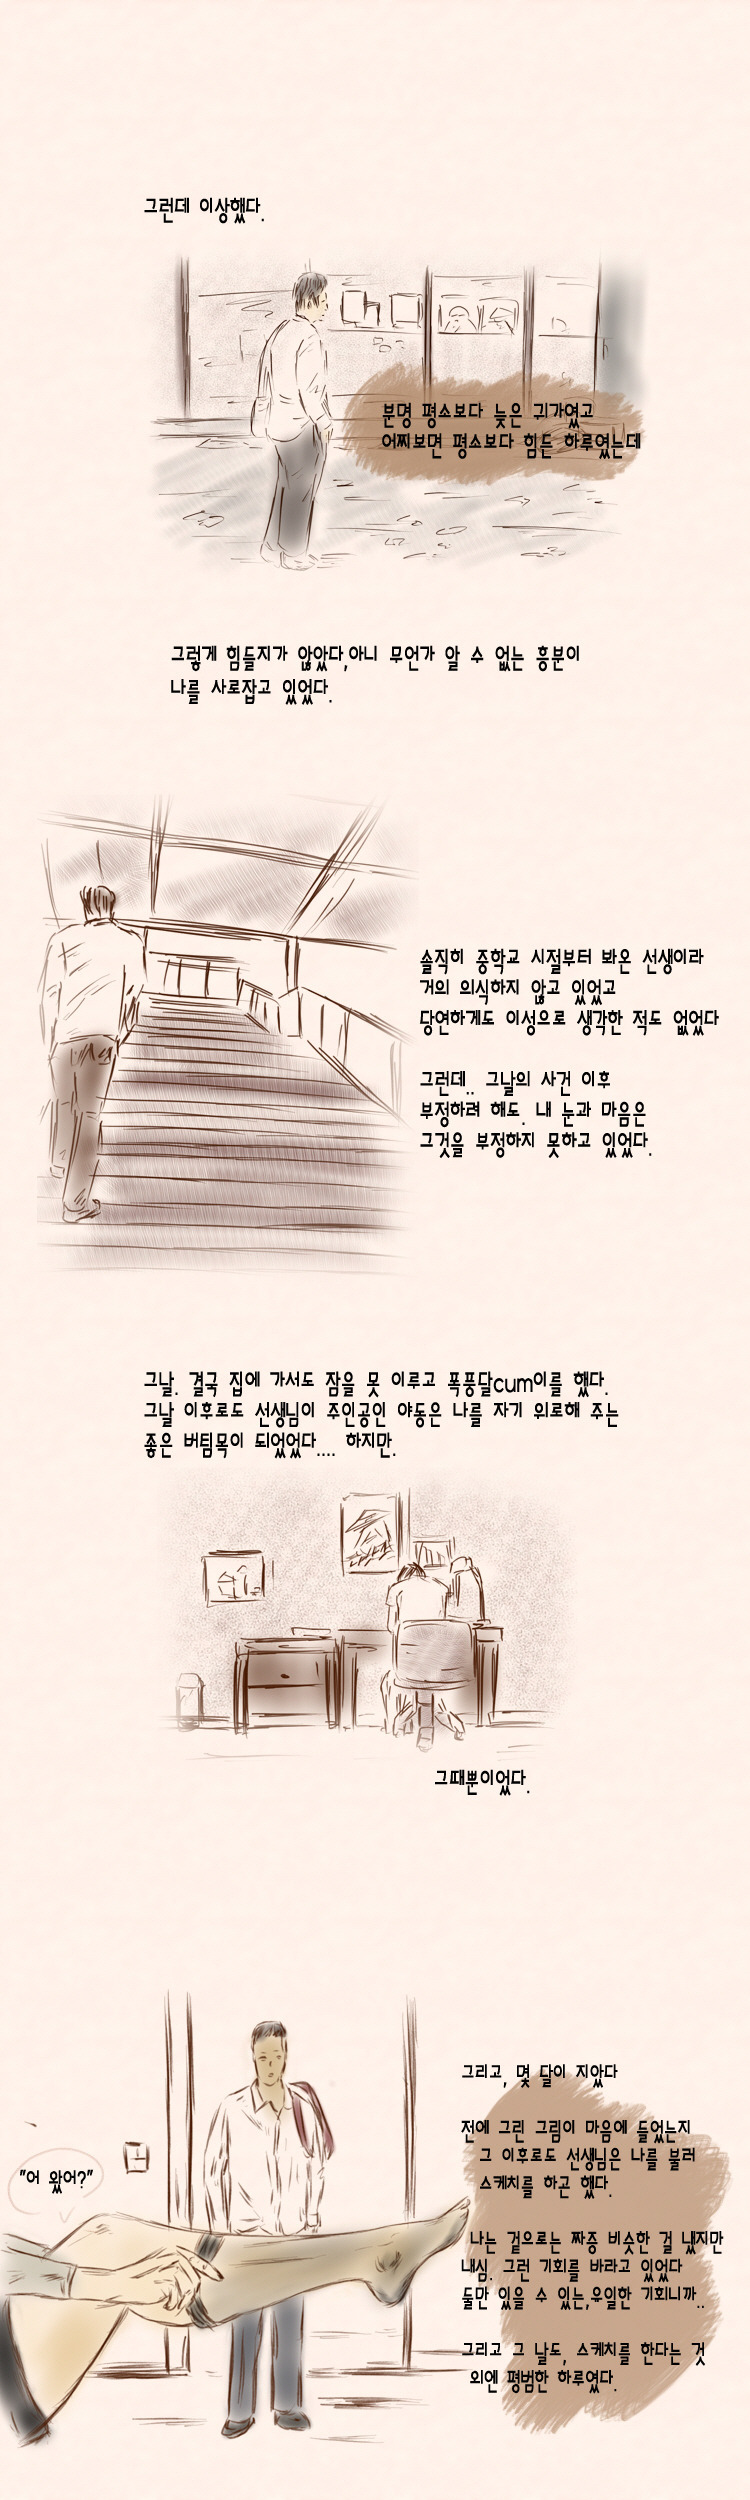 그런데 이상했다.
분명 평소보다 늦은 귀가였고
어찌보면 평소보다 힘든 하루였는데
그렇게 힘들지가 않았다,아니 무언가 알 수 없는 흥분이
나를 사로잡고 있었다.
솔직히 중학교 시절부터 봐온 선생이라
거의 의식하지 않고 있었고
당연하게도 이성으로 생각한 적도 없었다
그런데.. 그날의 사건 이후
부정하려 해도. 내 눈과 마음은
그것을 부정하지 못하고 있었다.
그날. 결국 집에 가서도 잠을 못 이루고 폭풍달cum이를 했다.
그날 이후로도 선생님이 주인공인 야동은 나를 자기 위로해 주는
좋은 버팀목이 되었었다.... 하지만.
그때뿐이었다.
그리고, 몇 달이 지았다
전에 그린 그림이 마음에 들었는지
그 이후로도 선생님은 나를 불러
스케치를 하곤 했다.
"어 왔어?"
나는 겉으로는 짜증 비슷한 걸 냈지만
내심. 그런 기회를 바라고 있었다
둘만 있을 수 있는,유일한 기회니까..
그리고 그 날도, 스케치를 한다는 것
외엔 평범한 하루였다.